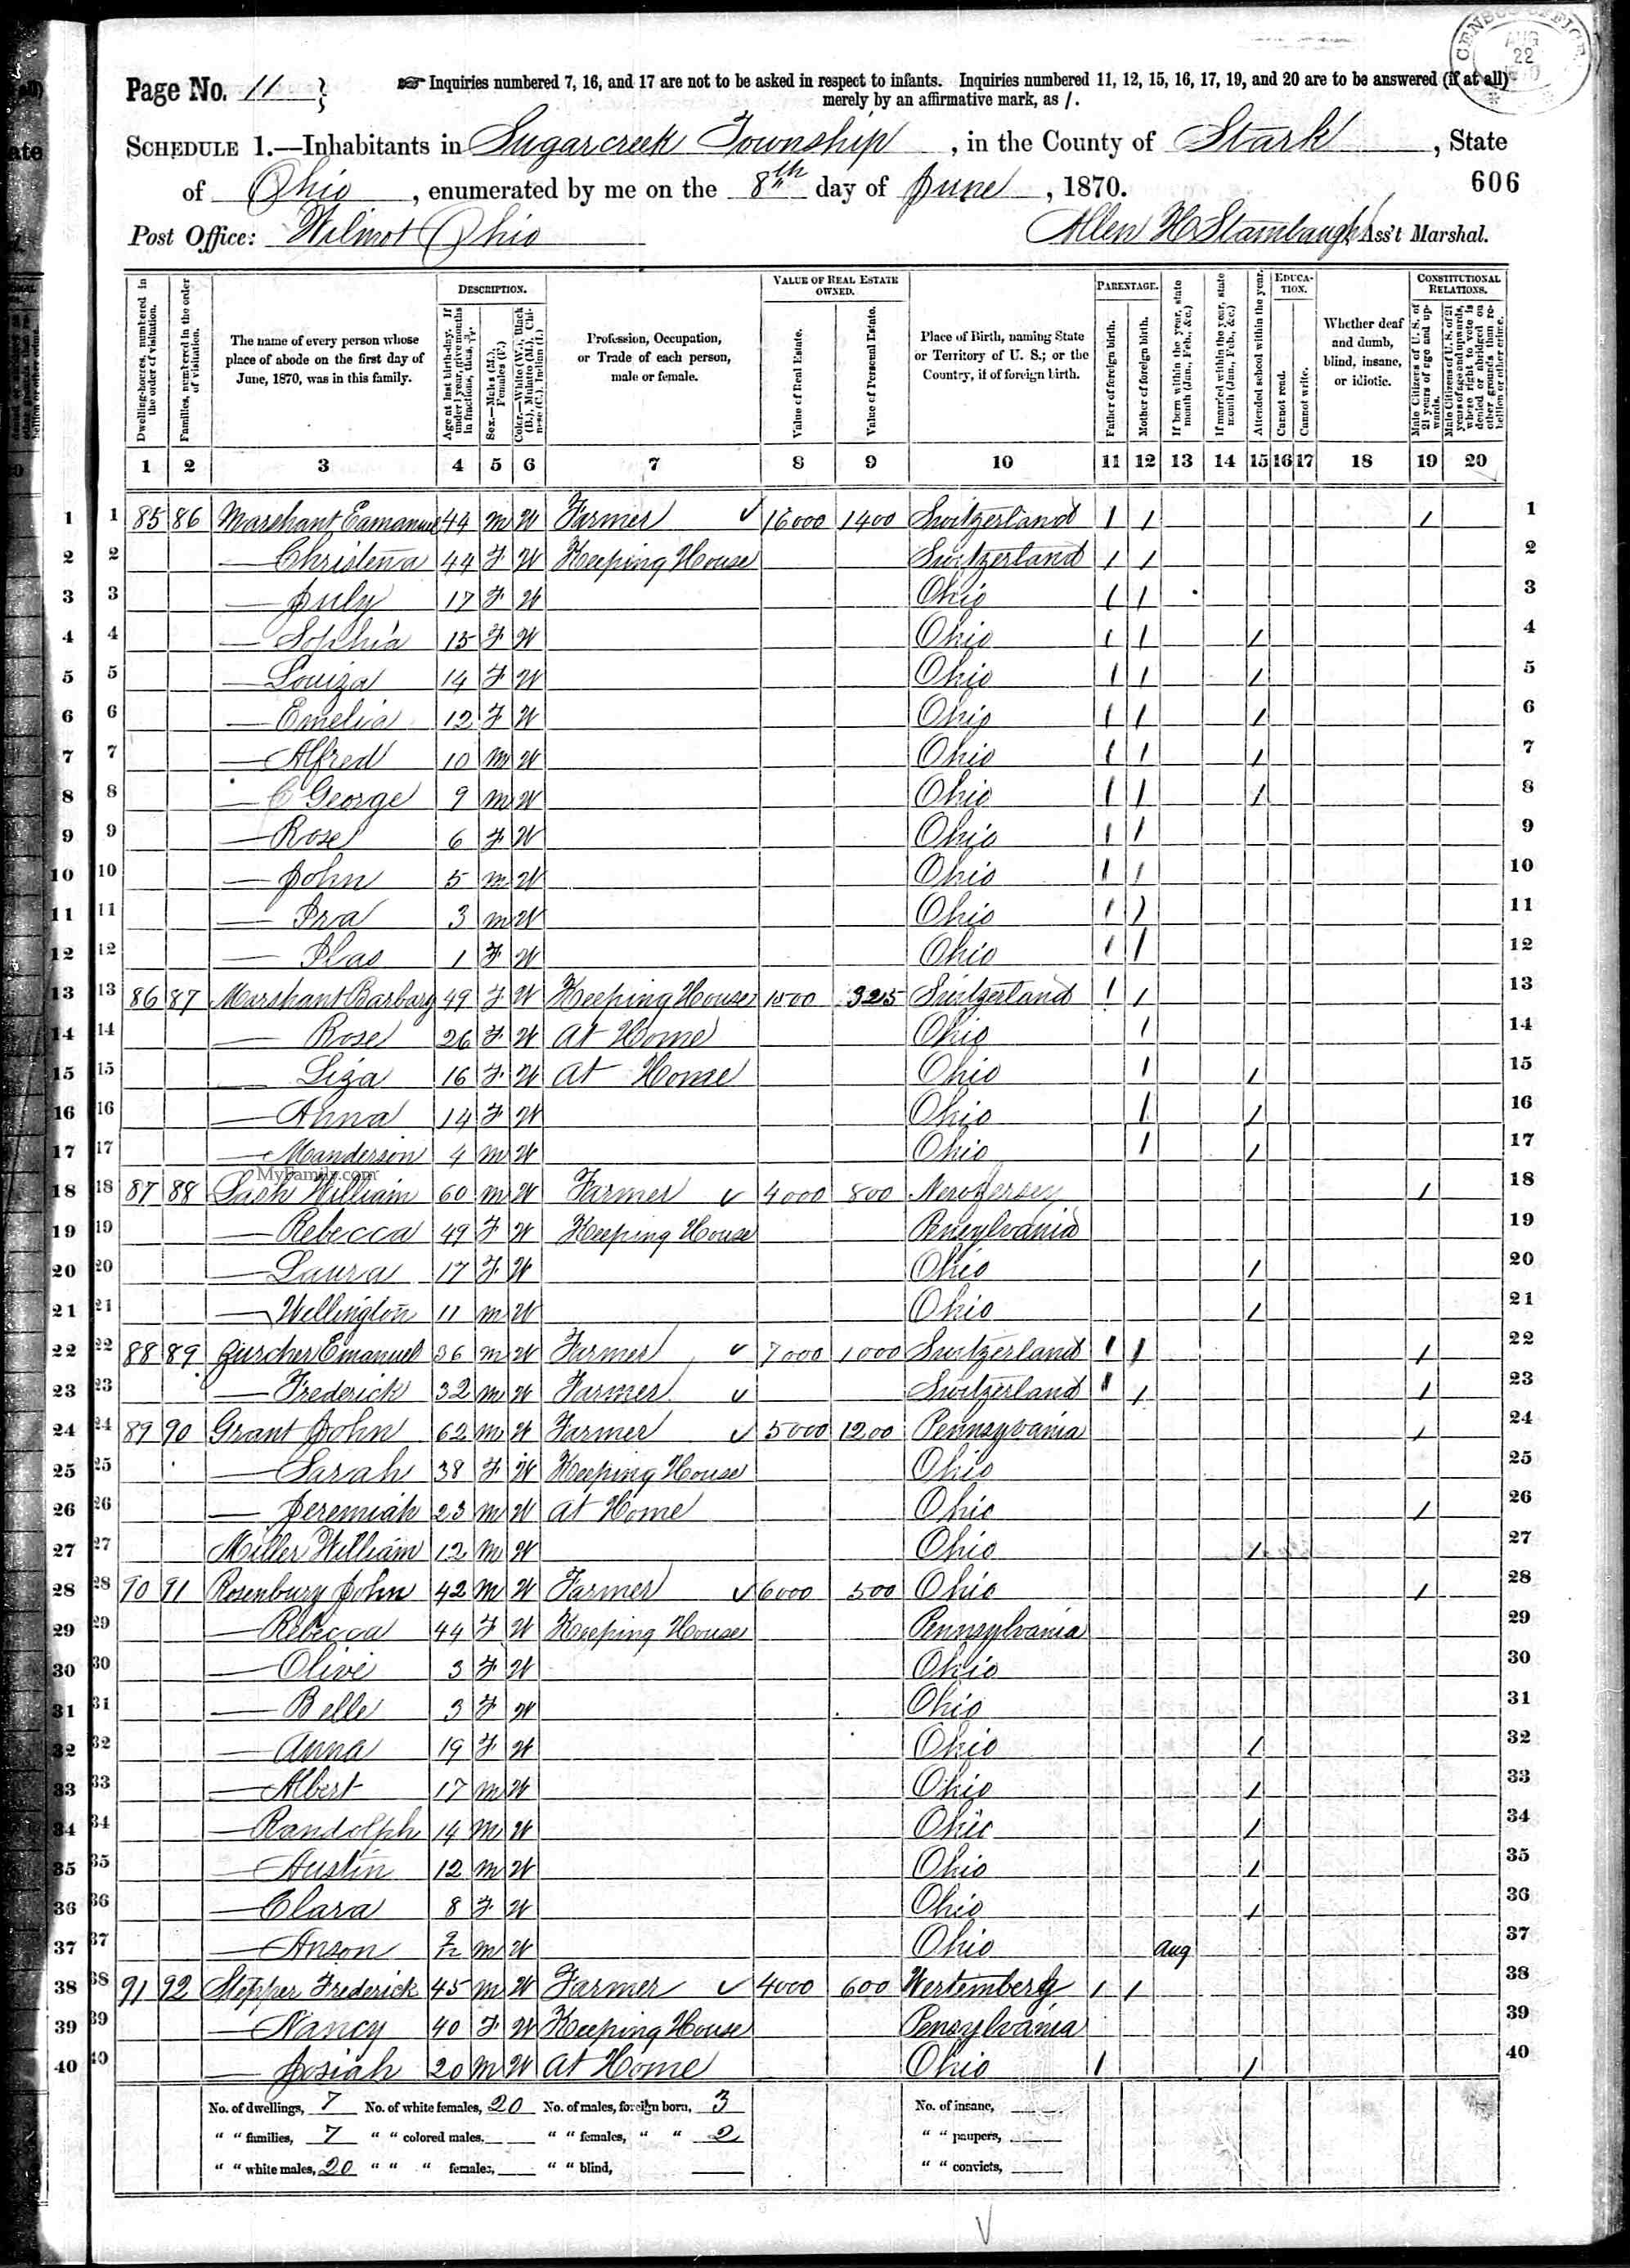 CENSUS OFFICE AUG 22
Page No. 11
Inquiries numbered 7, 16, and 17 are not to be asked in respect to infants. Inquiries numbered 11, 12, 15, 16, 17, 19, and 20 are to be answered (if at all)
merely by an affirmative mark, as /.
SCHEDULE 1.—Inhabitants in Sugarcreek Township, in the County of Stark, State
of Ohio, enumerated by me on the 8th day of June, 1870.
606
Post Office: Wilmot Ohio
Allen H Stambaugh Ass't Marshal.
Dwelling-houses, numbered in the order of visitation.
Families, numbered in the order of visitation.
The name of every person whose place of abode on the first day of June, 1870, was in this family.
DESCRIPTION.
Age at last birth-day. If under 1 year, give months in fractions, thus,
Sex.—Males (M.), Females (F.)
Color.—White (W.), Black (B.), Mulatto (M.), Chinese (C.), Indian (I.)
Profession, Occupation, or Trade of each person, male or female.
VALUE OF REAL ESTATE OWNED.
Value of Real Estate.
Value of Personal Estate.
Place of Birth, naming State or Territory of U. S.; or the Country, if of foreign birth.
PARENTAGE.
Father of foreign birth.
Mother of foreign birth.
If born within the year, state month (Jan., Feb., &c.)
If married within the year, state month (Jan., Feb., &c.)
Attended school within the year.
EDUCATION.
Cannot read.
Cannot write.
Whether deaf and dumb, blind, insane, or idiotic.
CONSTITUTIONAL RELATIONS.
Male Citizens of U. S. of 21 years of age and upwards.
Male Citizens of U. S. of 21 years of age and upwards, whose right to vote is denied or abridged on other grounds than rebellion or other crime.
1 2 3 4 5 6 7 8 9 10 11 12 13 14 15 16 17 18 19 20
1 1 85 86 Marshant Eamanuel 44 m W Farmer ✓ 16000 1400 Switzerland / / / 1
2 2 — Christena 44 F W Keeping House Switzerland / / 2
3 3 — July 17 F W Ohio / / 3
4 4 — Sophia 15 F W Ohio / / / 4
5 5 — Louiza 14 F W Ohio / / / 5
6 6 — Emelia 12 F W Ohio / / / 6
7 7 — Alfred 10 m W Ohio / / / 7
8 8 — C George 9 m W Ohio / / / 8
9 9 — Rose 6 F W Ohio / / 9
10 10 — John 5 m W Ohio / / 10
11 11 — Ira 3 m W Ohio / / 11
12 12 — 1 F W Ohio / / 12
13 13 86 87 Marshant Barbary 49 F W Keeping House 1500 325 Switzerland / / 13
14 14 — Rose 26 F W At Home Ohio / 14
15 15 — Liza 16 F W At Home Ohio / / 15
16 16 — Anna 14 F W Ohio / / 16
17 17 — Manderson 4 m W Ohio / / 17
MyFamily.com
18 18 87 88 Lash William 60 m W Farmer ✓ 4000 800 New Jersey / 18
19 19 — Rebecca 49 F W Keeping House Pensylvania 19
20 20 — Laura 17 F W Ohio / 20
21 21 — Wellington 11 m W Ohio / 21
22 22 88 89 Zurcher Emanuel 36 m W Farmer ✓ 7000 1000 Switzerland / / / 22
23 23 — Frederick 32 m W Farmer ✓ Switzerland / / / 23
24 24 89 90 Grant John 62 m W Farmer ✓ 5000 1200 Pennsyvania / 24
25 25 — Sarah 38 F W Keeping House Ohio 25
26 26 — Jeremiah 23 m W At Home Ohio / 26
27 27 Miller William 12 m W Ohio / 27
28 28 90 91 Rosenbury John 42 m W Farmer ✓ 6000 500 Ohio / 28
29 29 — Rebecca 44 F W Keeping House Pennsylvania 29
30 30 — Olive 3 F W Ohio 30
31 31 — Belle 3 F W Ohio 31
32 32 — Anna 19 F W Ohio / 32
33 33 — Albert 17 m W Ohio / 33
34 34 — Randolph 14 m W Ohio / 34
35 35 — Austin 12 m W Ohio / 35
36 36 — Clara 8 F W Ohio / 36
37 37 — Anson m W Ohio Aug 37
38 38 91 92 Stepper Frederick 45 m W Farmer ✓ 4000 600 Wertemberg / / 38
39 39 — Nancy 40 F W Keeping House Pensylvania 39
40 40 — Josiah 20 m W At Home Ohio / / 40
No. of dwellings, 7 No. of white females, 20 No. of males, foreign born, 3 No. of insane,
" " families, 7 " " colored males, " " females, " " 2 " " paupers,
" " white males, 20 " " " females, " " blind, " " convicts,